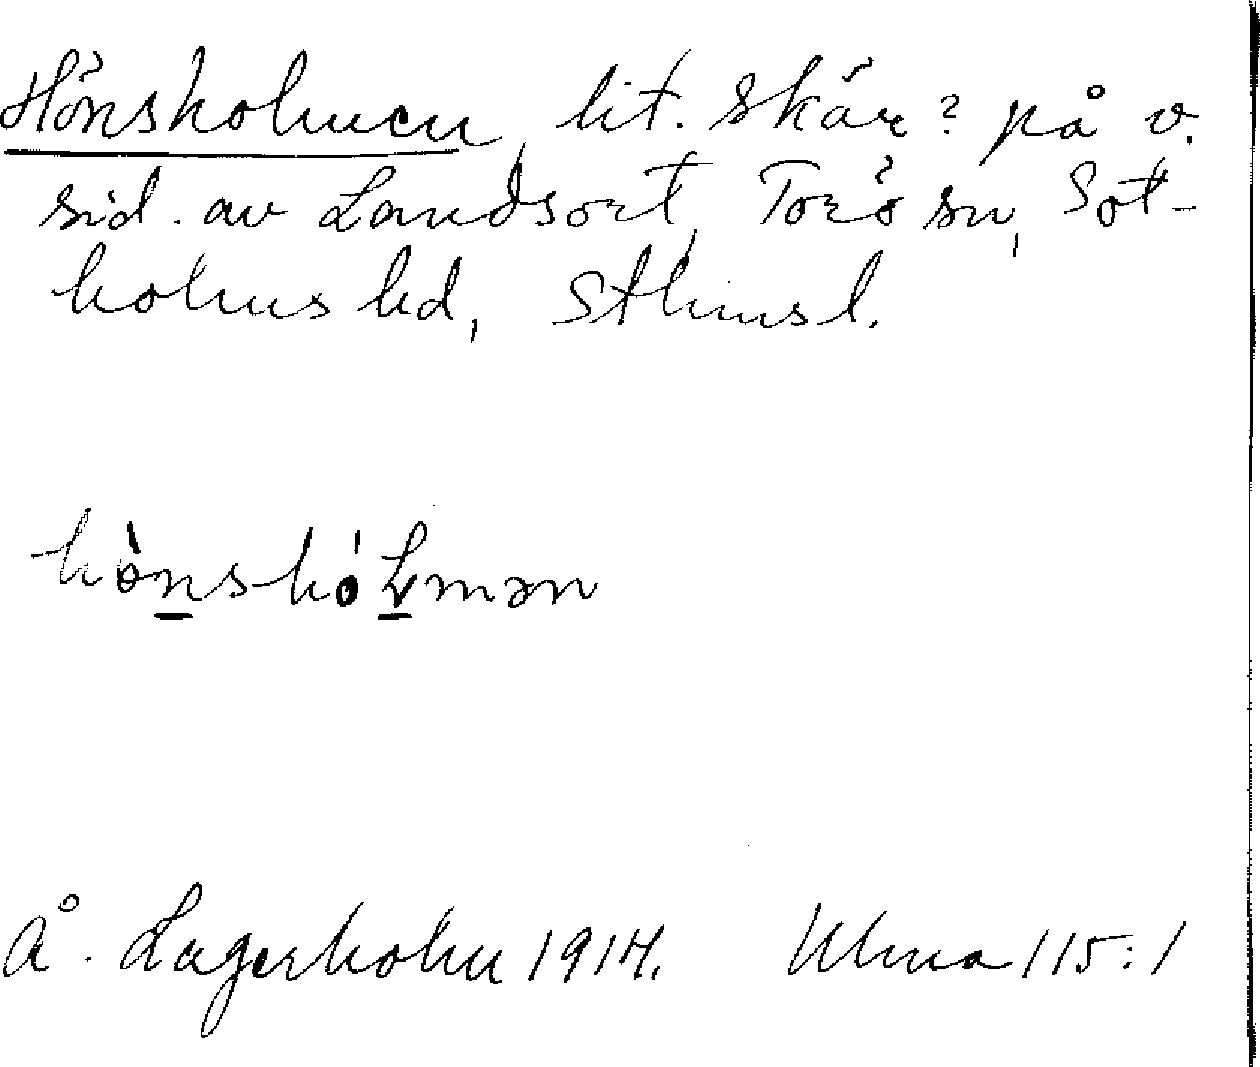 Hönsholmen, lit. skär? på v.
sid. av Landsort, Torö sn, Sot-
holms hd, Sthmsl.
hònshóLmən
Å. Lagerholm 1914. Ulma 115:1